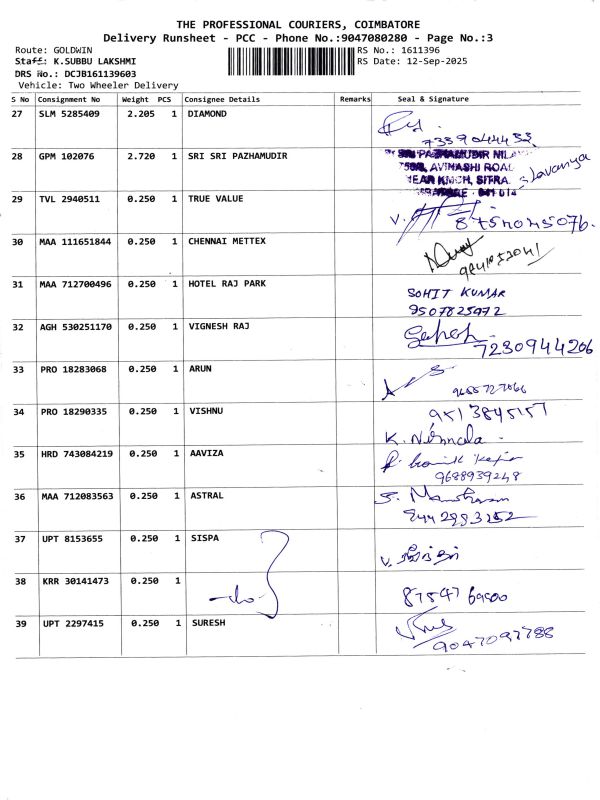 THE PROFESSIONAL COURIERS, COIMBATORE
Delivery Runsheet - PCC - Phone No.:9047080280 - Page No.:3
Route: GOLDWIN RS No.: 1611396
Staff: K.SUBBU LAKSHMI RS Date: 12-Sep-2025
DRS No.: DCJB161139603
Vehicle: Two Wheeler Delivery
S No Consignment No Weight PCS Consignee Details Remarks Seal & Signature
27 SLM 5285409 2.205 1 DIAMOND
28 GPM 102076 2.720 1 SRI SRI PAZHAMUDIR
SRI PAZHAMUDIR
AVINASHI ROAD
NEAR KMCH, SITRA
641 014
29 TVL 2940511 0.250 1 TRUE VALUE
V.
8754045076.
30 MAA 111651844 0.250 1 CHENNAI METTEX
9841053041
31 MAA 712700496 0.250 1 HOTEL RAJ PARK
SOHIT KUMAR
9507825972
32 AGH 530251170 0.250 1 VIGNESH RAJ
7230944206
33 PRO 18283068 0.250 1 ARUN
34 PRO 18290335 0.250 1 VISHNU
9513845157
K. Nirmala.
35 HRD 743084219 0.250 1 AAVIZA
9688939248
36 MAA 712083563 0.250 1 ASTRAL
37 UPT 8153655 0.250 1 SISPA
V.
38 KRR 30141473 0.250 1
-do-
87547 69500
39 UPT 2297415 0.250 1 SURESH
9047097788